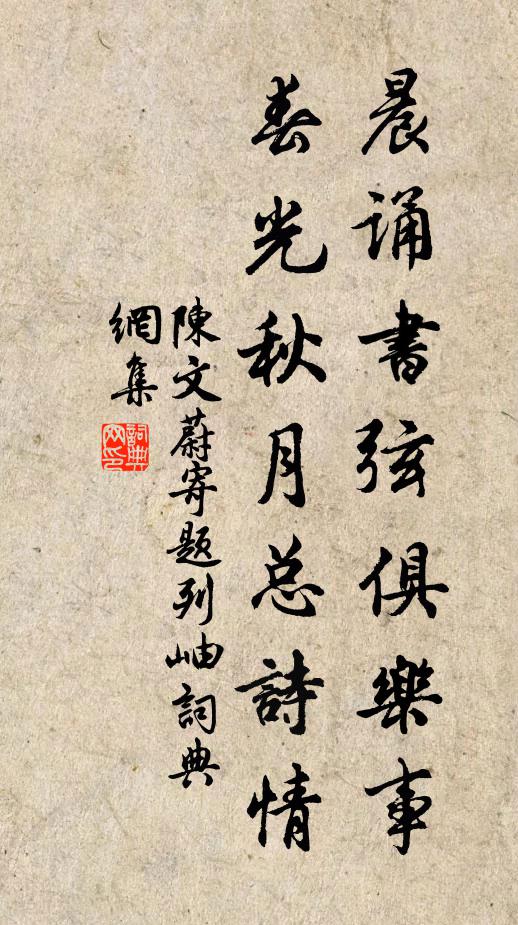 晨诵書弦俱樂事
春光秋月总詩情
陳文蔚寄題列岫詞典
網集
詞典
网印